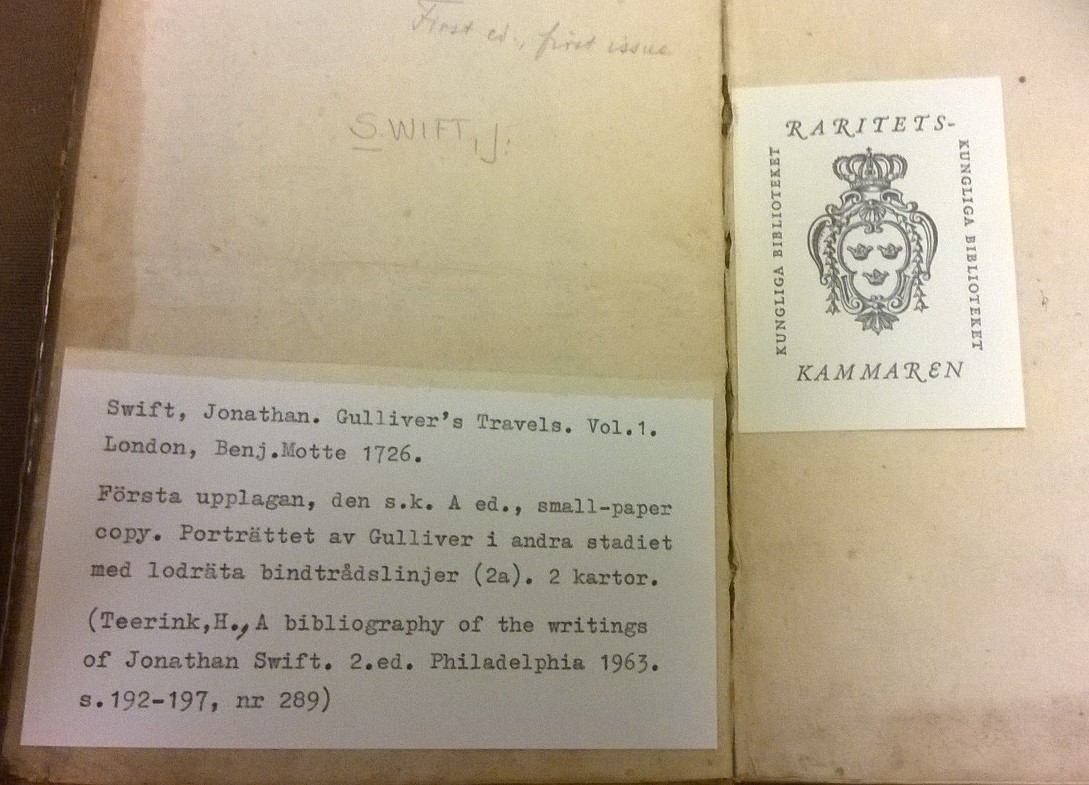 First ed., first issue
SWIFT, J.
Swift, Jonathan. Gulliver's Travels. Vol.1.
London, Benj.Motte 1726.
Första upplagan, den s.k. A ed., small-paper
copy. Porträttet av Gulliver i andra stadiet
med lodräta bindtrådslinjer (2a). 2 kartor.
(Teerink,H., A bibliography of the writings
of Jonathan Swift. 2.ed. Philadelphia 1963.
s.192-197, nr 289)
RARITETS-
KUNGLIGA BIBLIOTEKET
KUNGLIGA BIBLIOTEKET
KAMMAREN